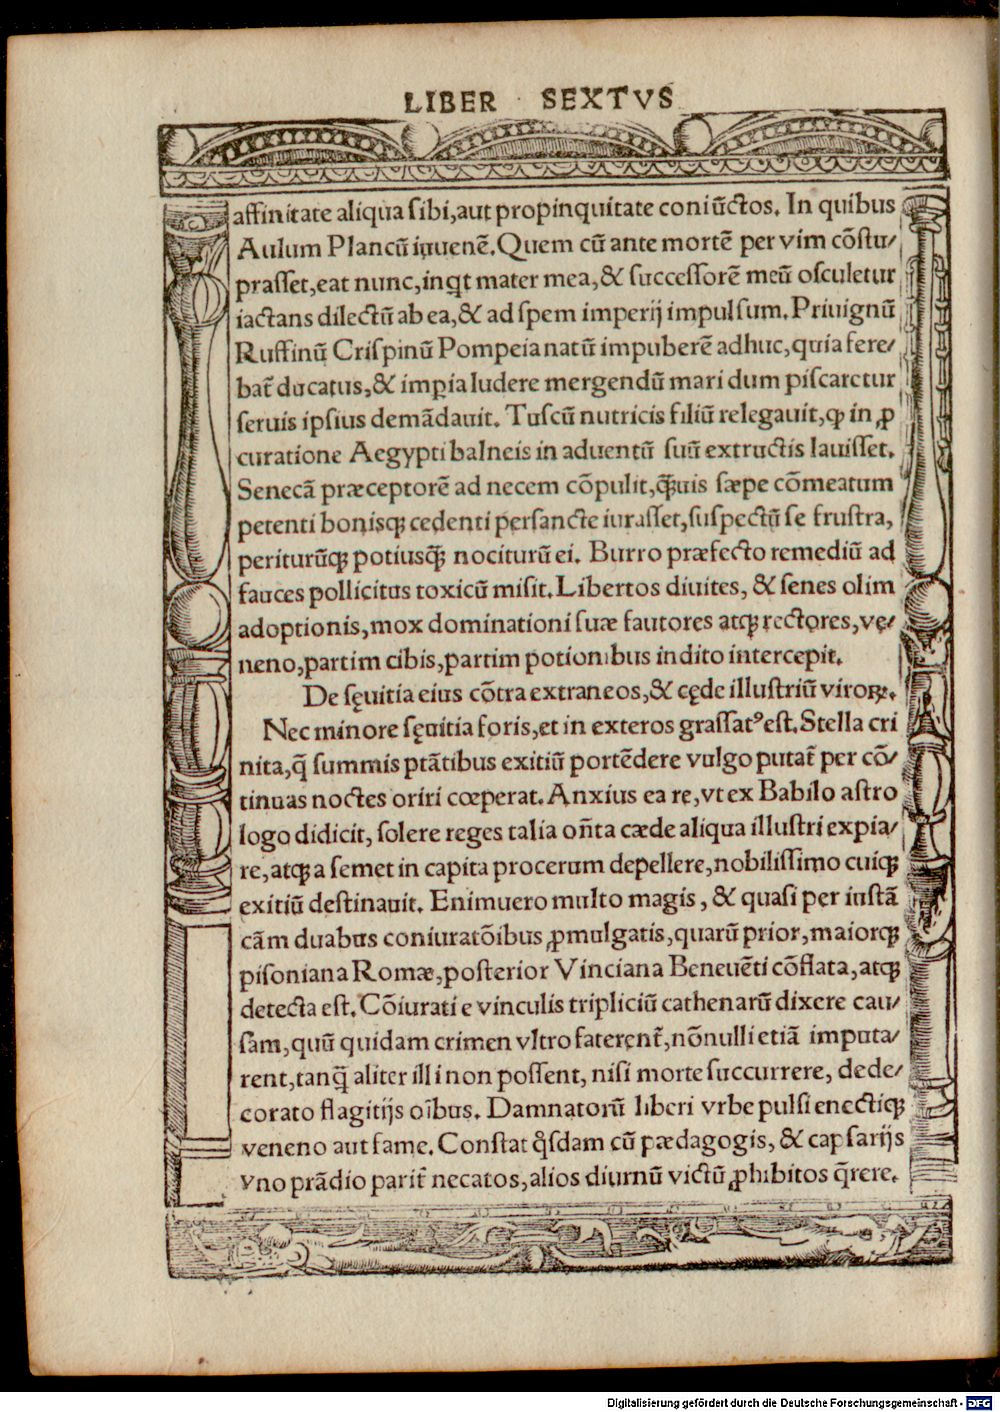 LIBER SEXTVS
affinitate aliqua sibi,aut propinquitate coniũctos. In quibus
Aulum Plancũ iuuenẽ.Quem cũ ante mortẽ per vim cõstu/
prasset,eat nunc,inq̃t mater mea,& successorẽ meũ osculetur
iactans dilectũ ab ea,& ad spem imperij impulsum.Priuignũ
Ruffinũ Crispinũ Pompeia natũ impuberẽ adhuc,quia fere/
bat̃ ducatus,& imꝑia ludere mergendũ mari dum piscaretur
seruis ipsius demãdauit. Tuscũ nutricis filiũ relegauit,ꝙ in ꝓ
curatione Aegypti balneis in aduentũ suũ extructis lauisset.
Senecã præceptorẽ ad necem cõpulit,q̃uis sæpe cõmeatum
petenti bonisqꝫ cedenti persancte iurasset,suspectũ se frustra,
periturũqꝫ potiusq̃ nociturũ ei. Burro præfecto remediũ ad
fauces pollicitus toxicũ misit.Libertos diuites, & senes olim
adoptionis,mox dominationi suæ fautores atqꝫ rectores,vę/
neno,partim cibis,partim potionibus indito intercepit.
De sęuitia eius cõtra extraneos,& cęde illustriũ viroꝝ.
Nec minore sęuitia foris,et in exteros grassatꝰ est.Stella cri
nita,q̃ summis ptãtibus exitiũ portẽdere vulgo putat̃ per cõ/
tinuas noctes oriri cœperat.Anxius ea re,vt ex Babilo astro
logo didicit, solere reges talia oñta cæde aliqua illustri expia/
re,atqꝫ a semet in capita procerum depellere,nobilissimo cuiqꝫ
exitiũ destinauit. Enimuero multo magis, & quasi per iustã
cãm duabus coniuratõibus ꝓmulgatis,quarũ prior,maiorqꝫ
pisoniana Romæ,posterior Vinciana Beneuẽti cõflata,atqꝫ
detecta est.Cõiurati e vinculis tripliciũ cathenarũ dixere cau/
sam,quũ quidam crimen vltro faterent̃,nõnulli etiã imputa/
rent,tanq̃ aliter illi non possent, nisi morte succurrere, dede/
corato flagitijs oĩbus. Damnatorũ liberi vrbe pulsi enectiqꝫ
veneno aut fame.Constat q̊sdam cũ pædagogis,& capsarijs
vno prãdio parit̃ necatos,alios diurnũ victũ ꝓhibitos q̃rere.
Digitalisierung gefördert durch die Deutsche Forschungsgemeinschaft - DFG